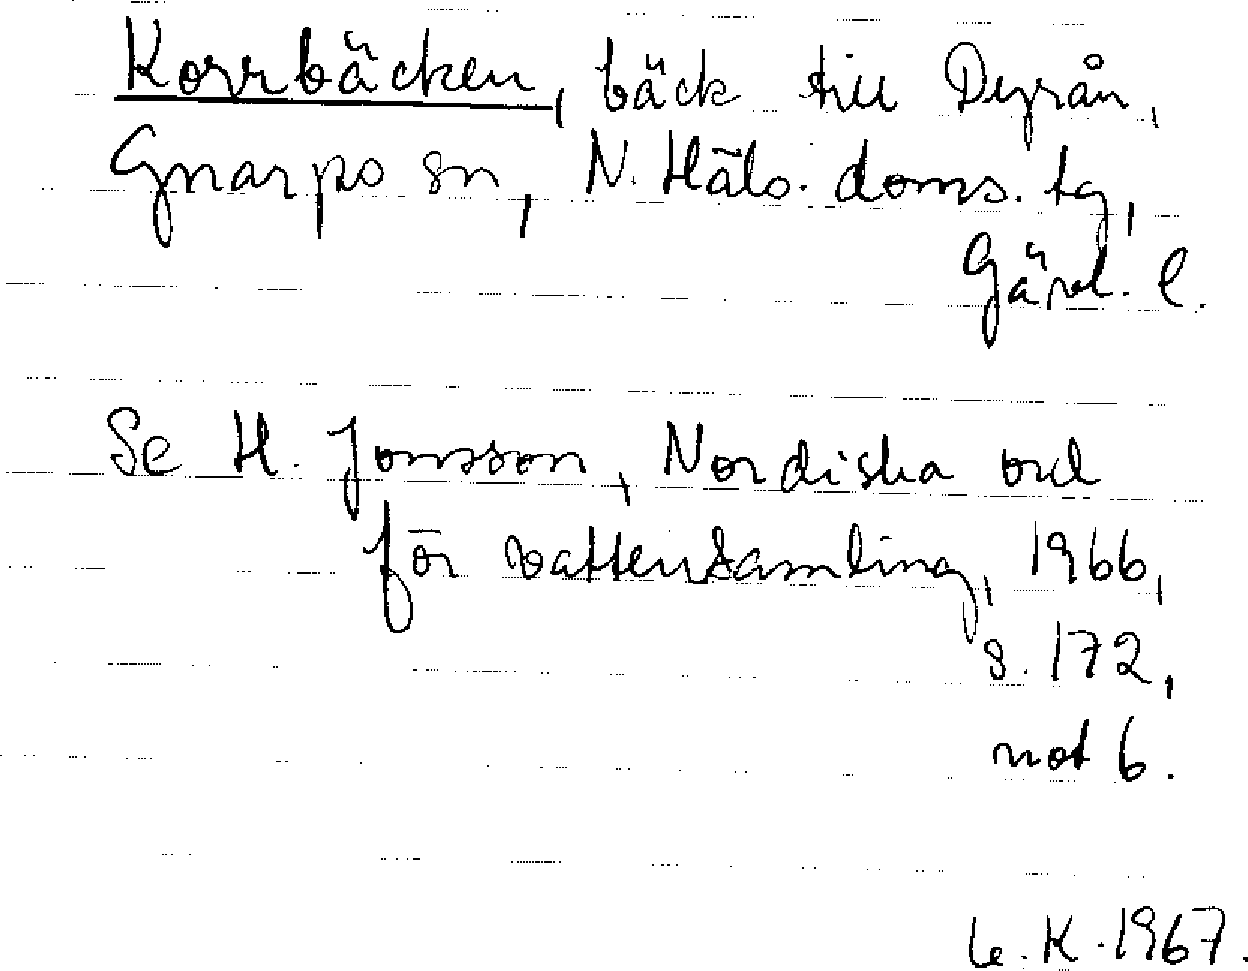 Korrbäcken, bäck till Dyrån,
Gnarps sn, N. Häls. doms. tg,
Gävl. l.
Se H. Jonsson, Nordiska ord
för vattensamling, 1966,
s. 172,
not 6.
Le. K. 1967.